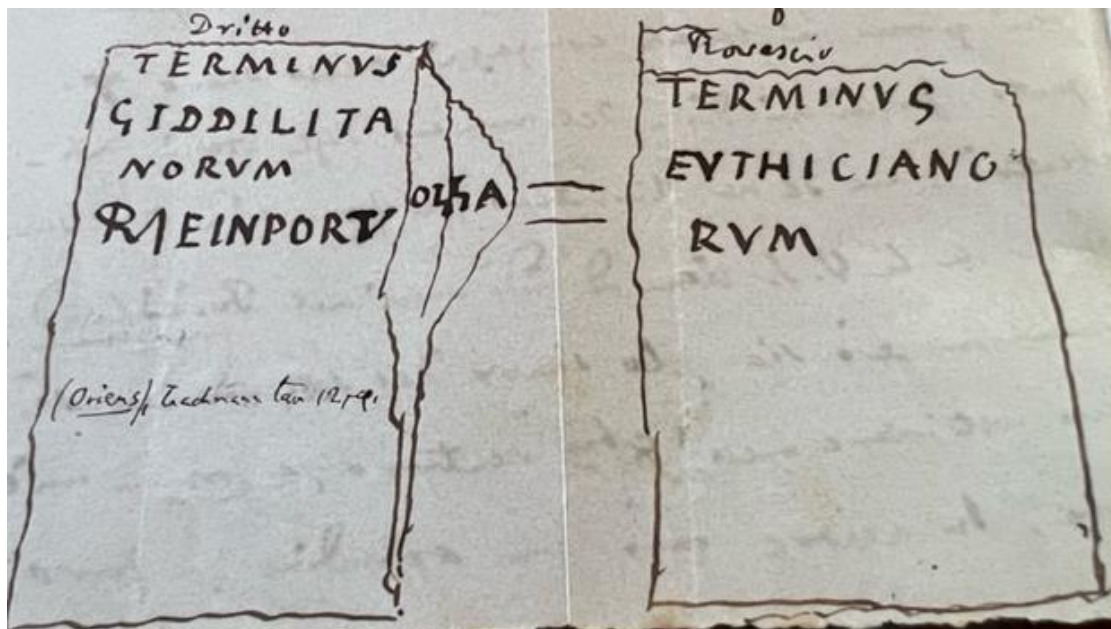 Dritto
TERMINVS
GIDDILITA
NORVM
(Oriens),
Rovescio
TERMINVS
EVTHICIANO
RVM